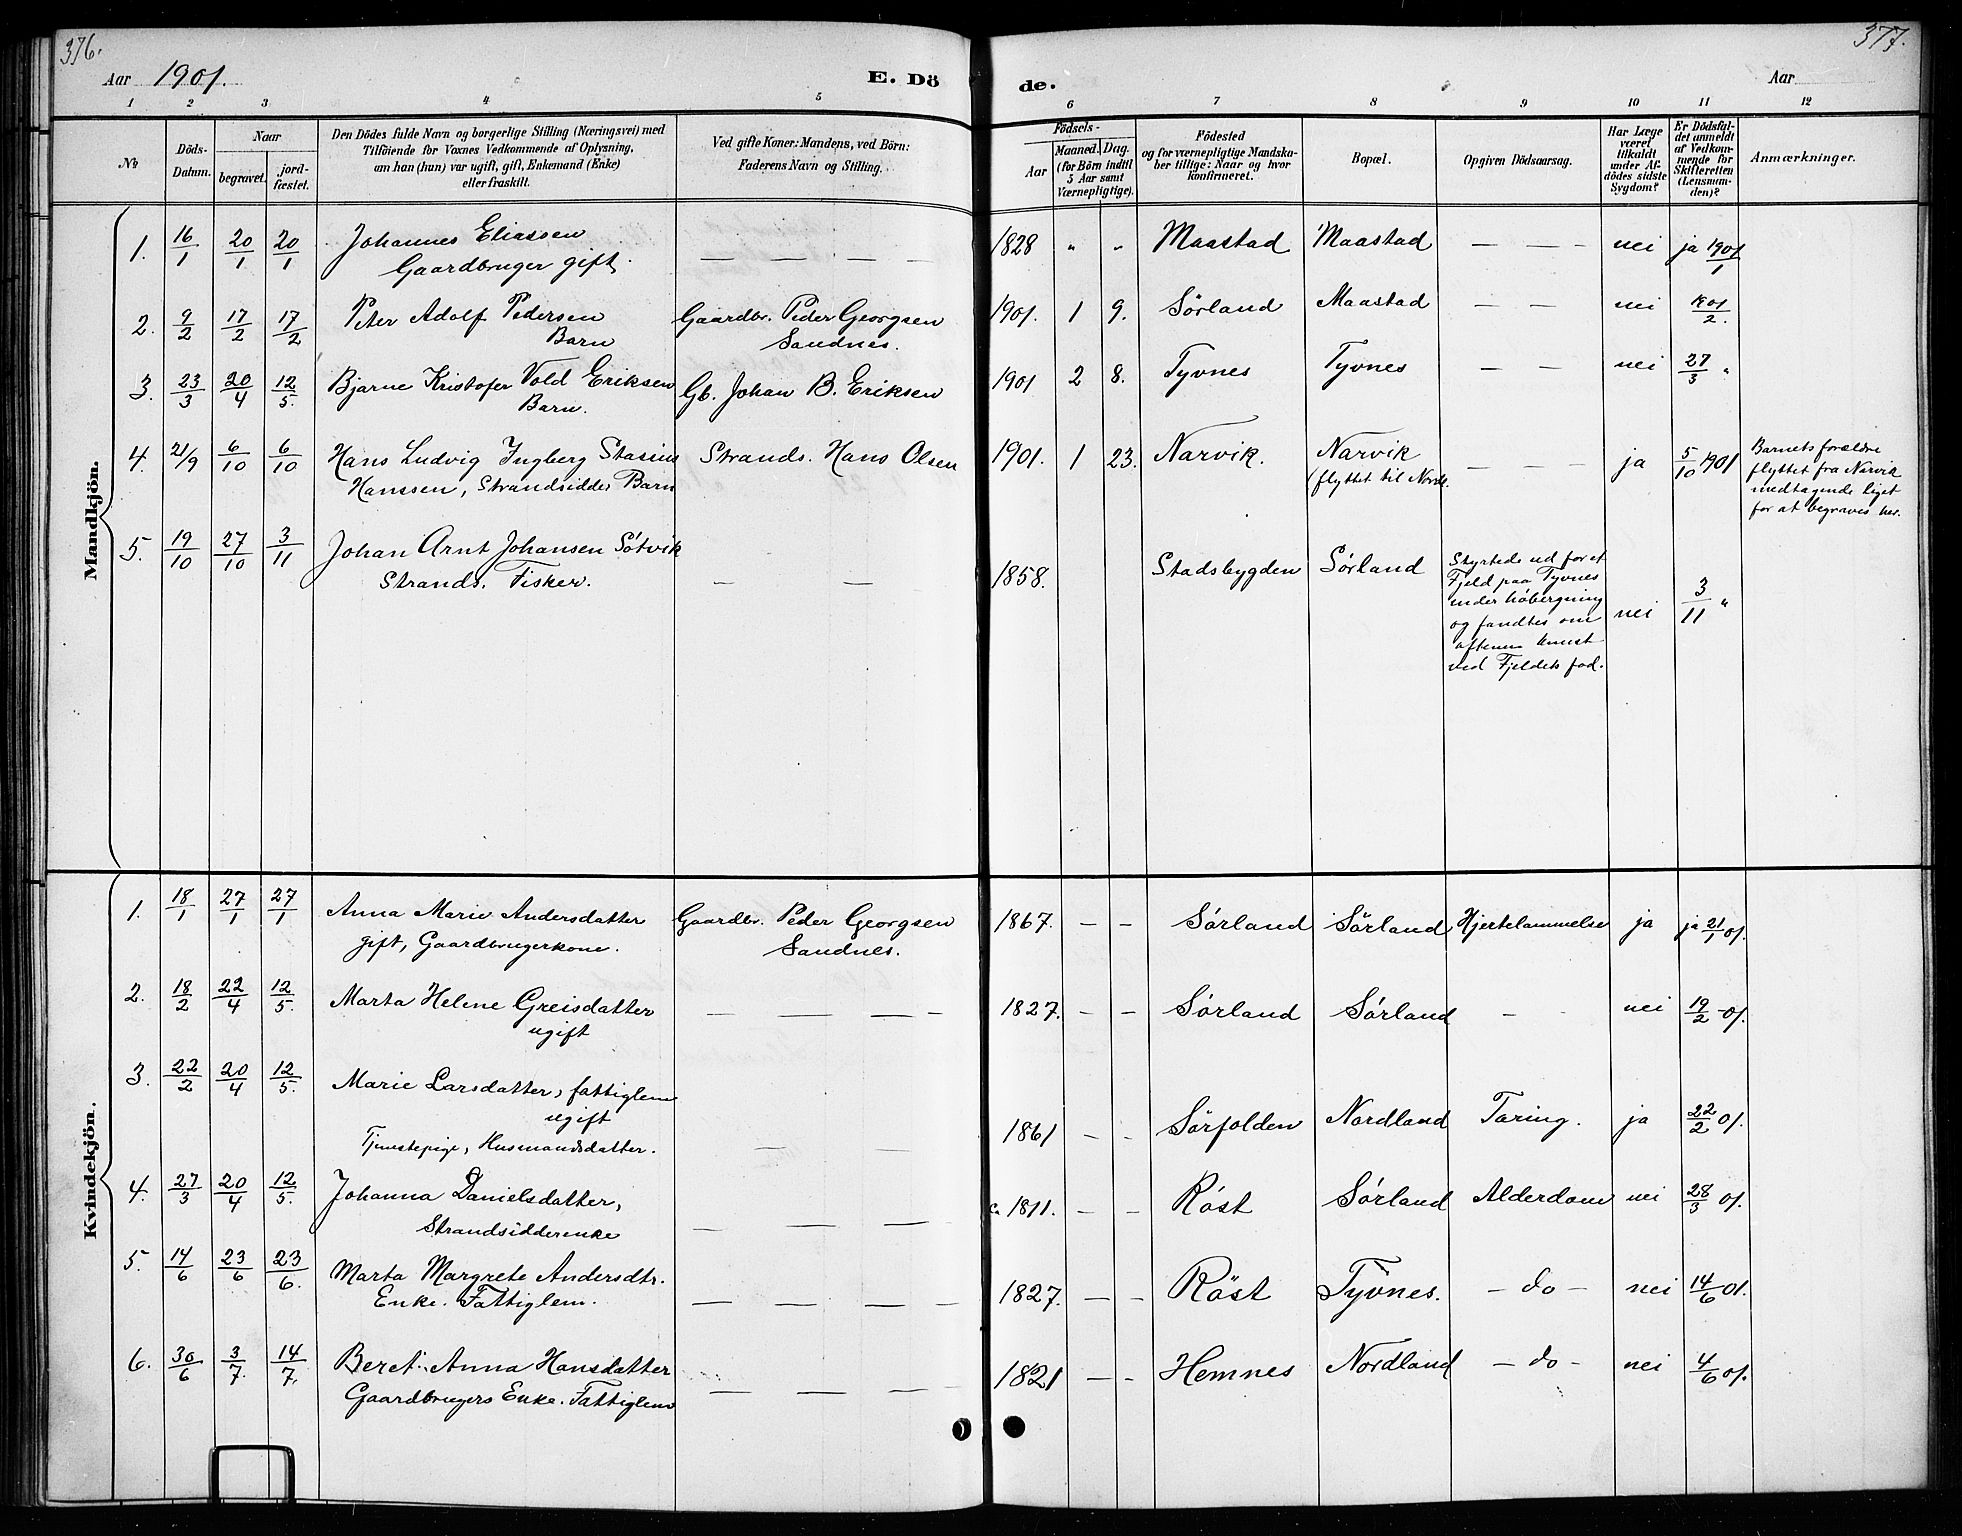 376.
377.
Aar 1901. E. Dö de. Aar
1 2 3 4 5 6 7 8 9 10 11 12
No
Döds-Datum.
Naar
begravet.
jordfæstet.
Den Dödes fulde Navn og borgerlige Stilling (Næringsvei) med
Tilföiende for Voxnes Vedkommende af Oplysning,
om han (hun) var ugift, gift, Enkemand (Enke)
eller fraskilt.
Ved gifte Koner: Mandens, ved Börn:
Faderens Navn og Stilling.
Födsels-
Aar
Maaned. Dag.
(for Börn indtil
5 Aar samt
Værnepligtige).
Födested
og for værnepligtige Mandska-
ber tillige: Naar og hvor
konfirmeret.
Bopæl.
Opgiven Dödsaarsag.
Har Læge
været
tilkaldt
under Af-
dödes sidste
Sygdom?
Er Dödsfal-
det anmeldt
af Vedkom-
mende for
Skifteretten
(Lensman-
den)?
Anmærkninger.
Mandkjön.
1. 16/1 20/1 20/1 Johannes Eliassen — — — — 1828 " " Maastad Maastad — — — nei ja 1901/1
Gaardbruger gift.
2. 9/2 17/2 17/2 Peter Adolf Pedersen Gaardbr. Peder Georgsen 1901. 1 9. Sørland Maastad — — nei 1901/2.
Barn Sandnes.
3. 23/3 20/4 12/5. Bjarne Kristofer Vold Eriksen Gb. Johan B. Eriksen 1901 2 8. Tyvnes Tyvnes — — nei 27/3 "
Barn.
4. 21/9 6/10 6/10 Hans Ludvig Ingberg Stasius Strands. Hans Olsen 1901. 1 23. Narvik. Narvik — — — ja 5/10 1901 Barnets forældre
Hanssen, Strandsidder Barn (flyttet til Nordl. flyttet fra Narvik
medtagende liget
for at begraves her.
5. 19/10 27/10 3/11 Johan Arnt Johansen Sótvik — — 1858. Stadsbygden Sórland Styrtede ud for et
Strands. Fisker. Fjeld paa Tyvnes
under hóbergning nei 3/11 "
og fandtes om
aftenen knust
ved Fjeldets fod.
Kvindekjön.
1. 18/1 27/1 27/1 Anna Marie Andersdatter Gaardbr. Peder Georgsen 1867. — — Sórland Sórland Hjertelammelse ja ja 21/1 01.
gift, Gaardbrugerkone. Sandnes.
2. 18/2 22/4 12/5. Marta Helene Greisdatter — — — — 1827. — — Sórland Sórland — — nei 19/2 -01.
ugift
3. 22/2 20/4 12/5. Marie Larsdatter, fattiglem
ugift 1861 — — Sórfolden Nordland Taring. ja 22/2 01.
Tjenstepige, Husmandsdatter. — —
4. 27/3 20/4 12/5. Johanna Danielsdatter, — — — c. 1811. — — Róst Sórland Alderdom nei 28/3 01.
Strandsidderenke
5. 14/6 23/6 23/6. Marta Margrete Andersdtr. 1827. — — Röst Tyvnes. — do — nei 14/6 01.
Enke. Fattiglem. — — — —
6. 30/6 3/7. 14/7. Beret Anna Hansdatter 1821 — — Hemnes Nordland — do — nei 4/6 01.
Gaardbrugers Enke. Fattiglem — — — —